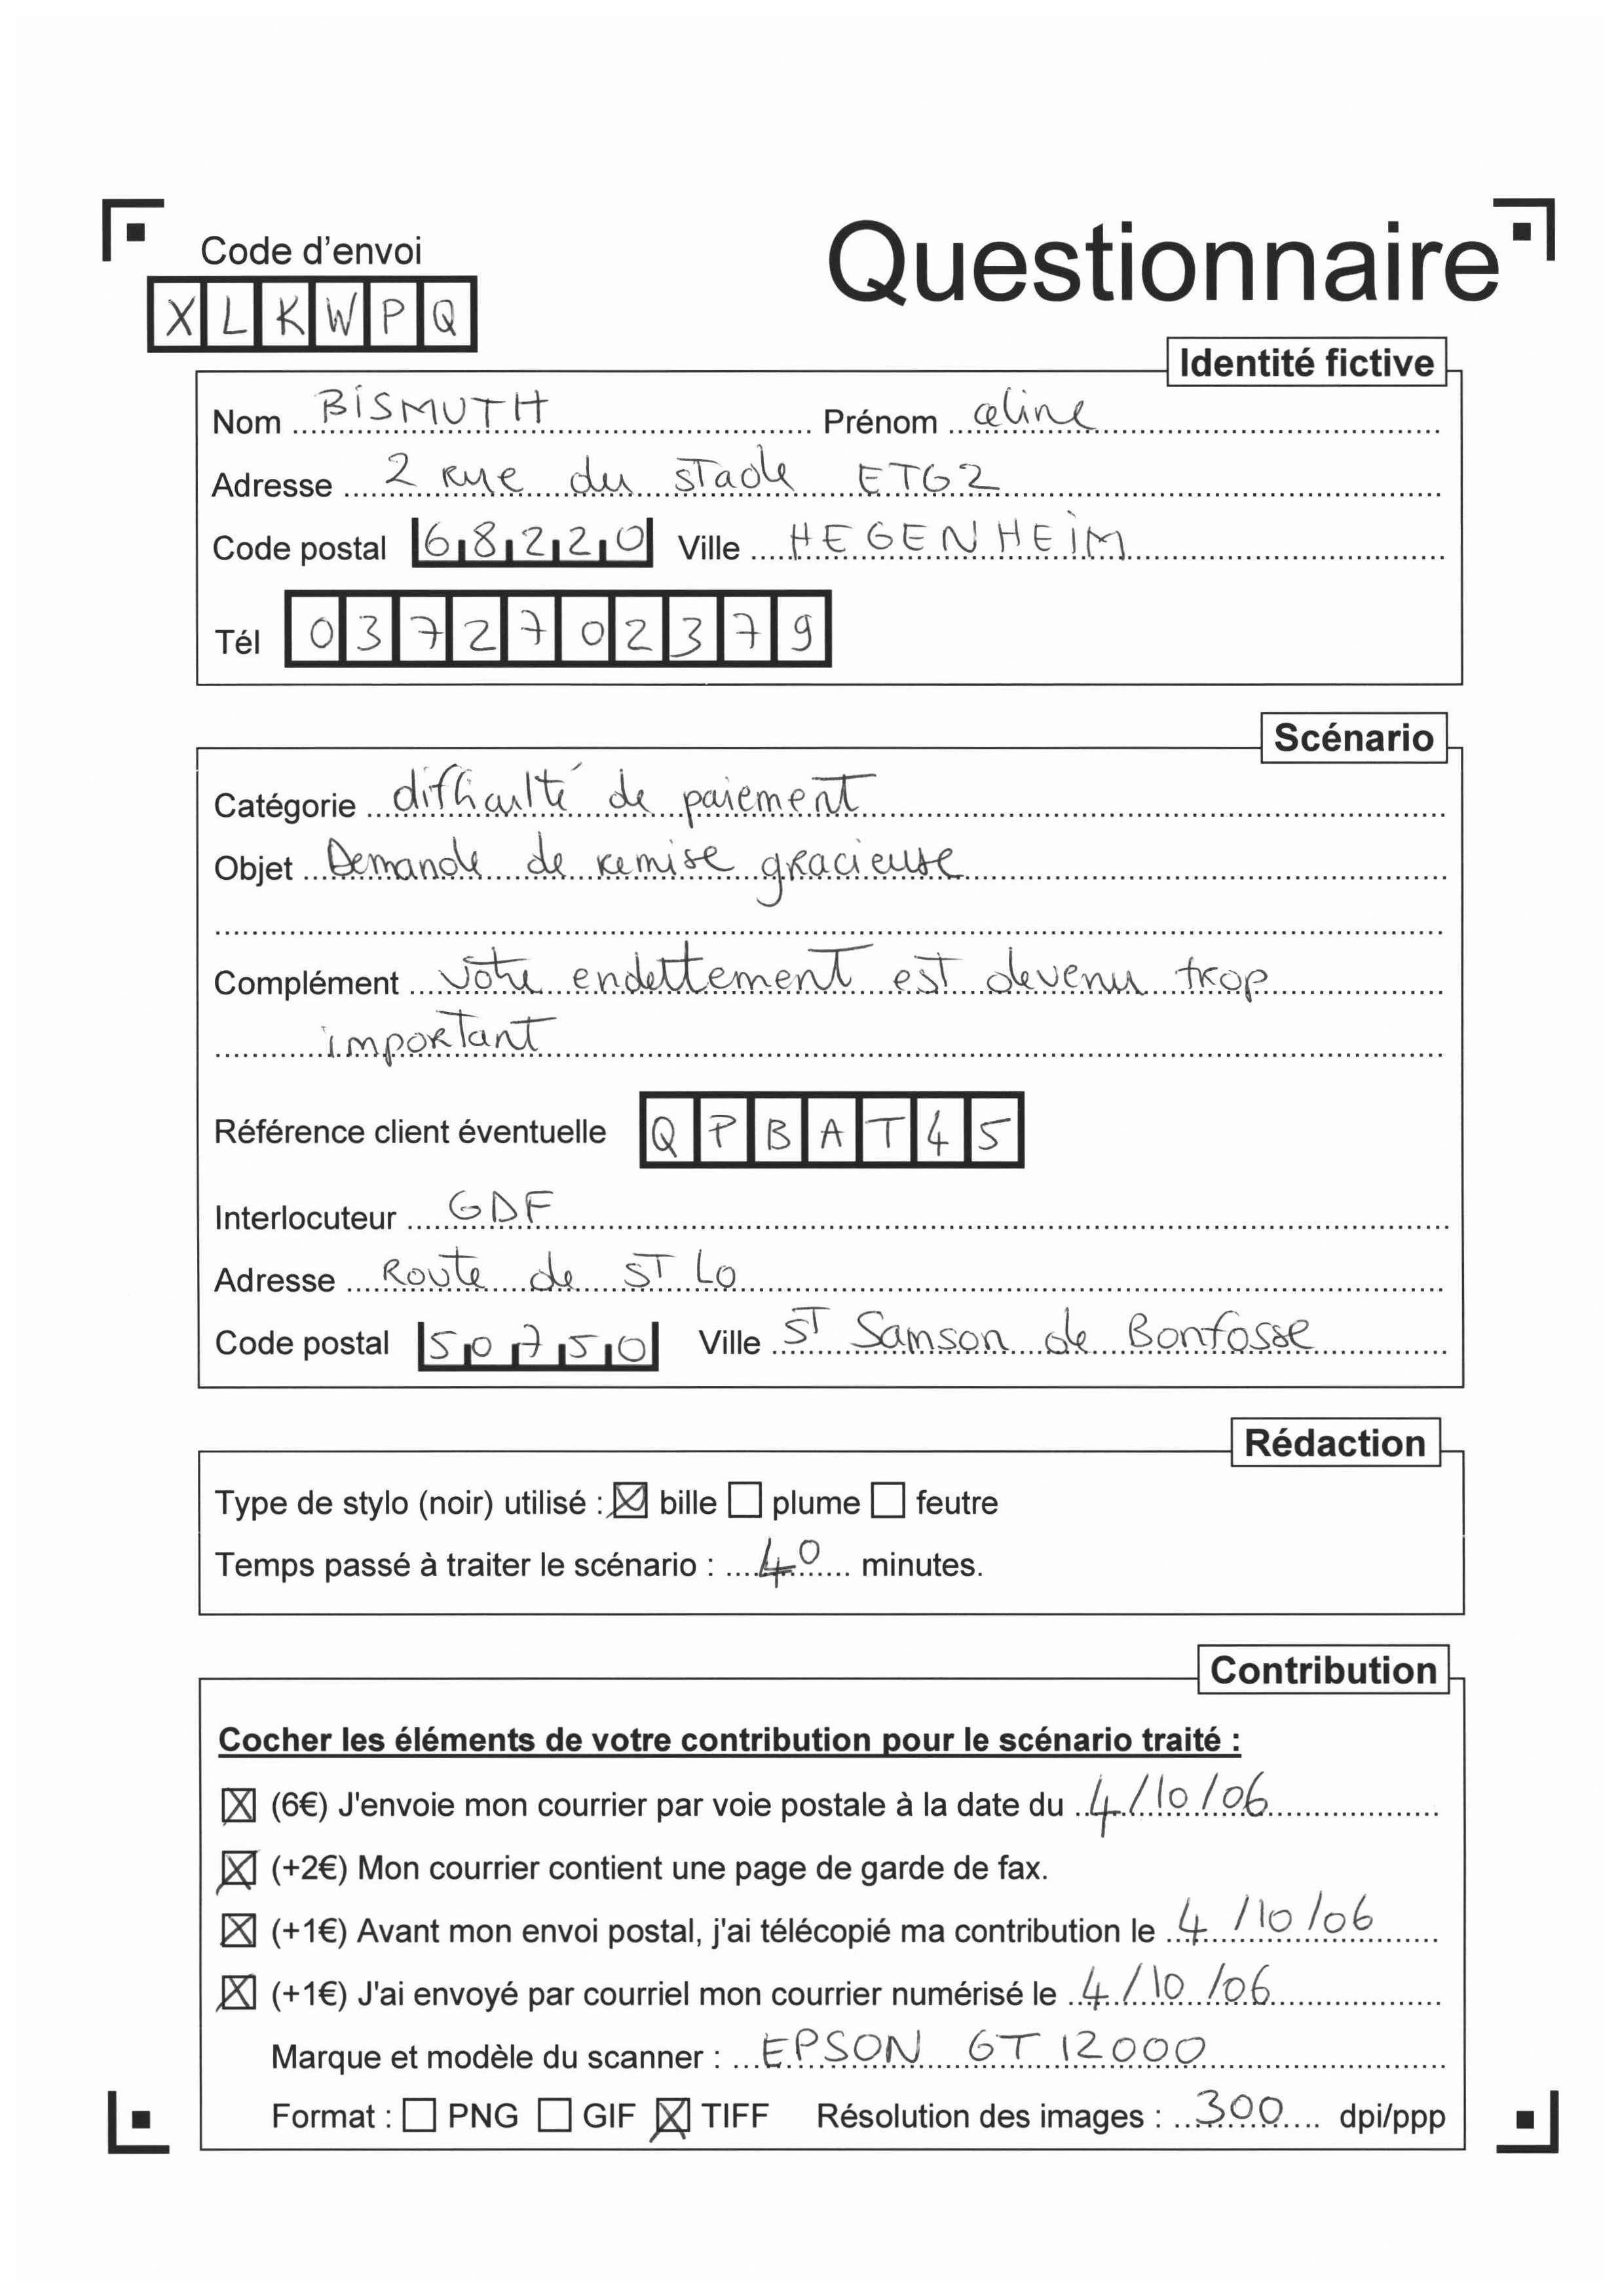 Code d'envoi
Questionnaire
XLKWPQ
Identité fictive
Nom BISMUTH Prénom celine
Adresse 2 Rue du stade ETG2
Code postal 68220 Ville HEGENHEIM
Tél 0372702379
Scénario
Catégorie difficulté de paiement
Objet Demande de remise gracieuse
Complément votre endettement est devenu trop
important
Référence client éventuelle QPBAT45
Interlocuteur GDF
Adresse Route de ST LO
Code postal 50750 Ville ST Samson de Bonfosse
Rédaction
Type de stylo (noir) utilisé : ☒ bille ☐ plume ☐ feutre
Temps passé à traiter le scénario : 40 minutes.
Contribution
Cocher les éléments de votre contribution pour le scénario traité :
☒ (6€) J'envoie mon courrier par voie postale à la date du 4/10/06
☒ (+2€) Mon courrier contient une page de garde de fax.
☒ (+1€) Avant mon envoi postal, j'ai télécopié ma contribution le 4/10/06
☒ (+1€) J'ai envoyé par courriel mon courrier numérisé le 4/10/06
Marque et modèle du scanner : EPSON GT 12000
Format : ☐ PNG ☐ GIF ☒ TIFF Résolution des images : 300 dpi/ppp